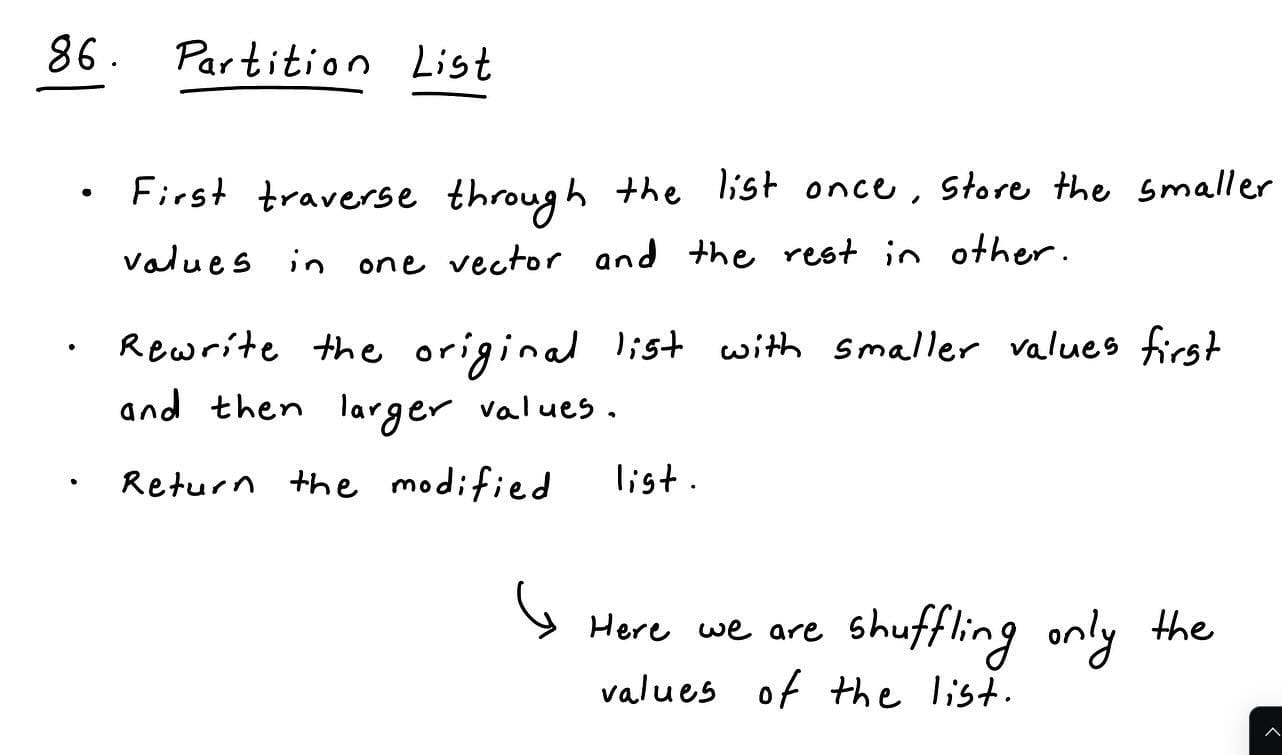 86. Partition List
• First traverse through the list once, store the smaller
values in one vector and the rest in other.
• Rewrite the original list with smaller values first
and then larger values.
• Return the modified list.
↳ Here we are shuffling only the
values of the list.